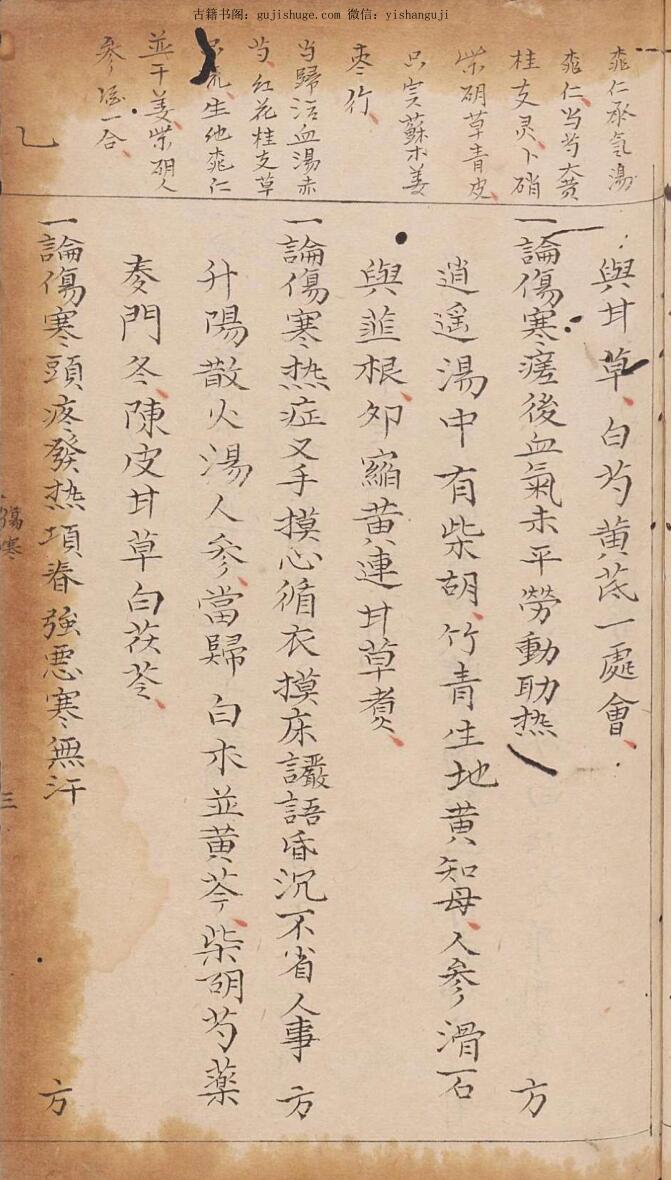 古籍书阁：gujishuge.com 微信：yishanguji
桃仁承氣湯
桃仁当芍大黄
桂支灵卜硝
柴胡草青皮
只宎蘇木姜
枣行
当歸活血湯赤
芍、红花桂支草
生地桃仁
並干姜柴胡人
參一合、
與甘草、白芍黄芪一處會、
一論傷寒瘥後血氣未平勞動助热 方
逍遥湯中有柴胡、竹青生地黄知母、人參滑石
與韮根、夘縮黄連甘草煑、
一論傷寒热症叉手摸心循衣摸床讝語昏沉不省人事 方
升陽散火湯人參、當歸白朮並黄芩、柴胡芍薬
麦門冬、陳皮甘草白茯苓、
一論傷寒頭疼發热項脊強悪寒無汗 方
傷寒
三